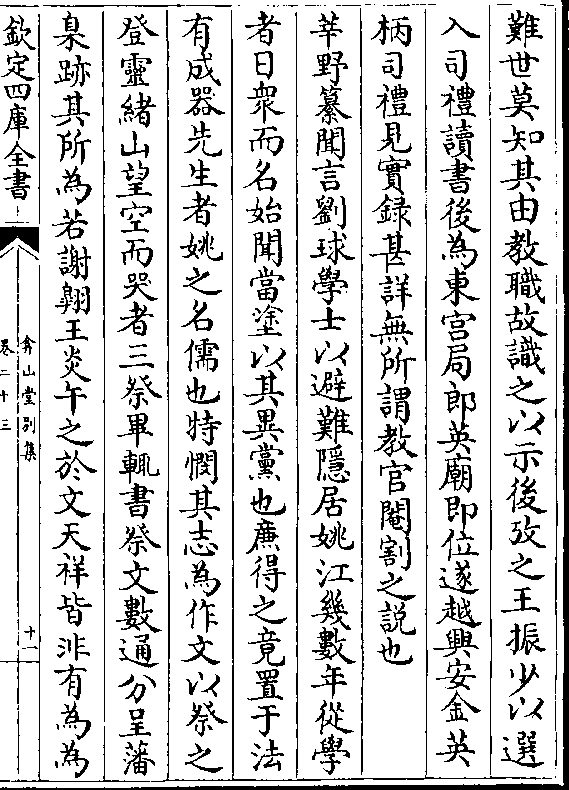 難世莫知其由教職故識之以示後攷之王振少以選
入司禮讀書後為東宮局郎英廟即位遂越興安金英
柄司禮見實録甚詳無所謂教官閹割之説也
莘野纂聞言劉球學士以避難隱居姚江幾數年從學
者日衆而名始聞當塗以其異黨也廉得之竟置于法
有成器先生者姚之名儒也特憫其志為作文以祭之
登靈緒山望空而哭者三祭畢輒書祭文數通分呈藩
臬跡其所為若謝翺王炎午之於文天祥皆非有為為
欽定四庫全書
弇山堂别集
卷二十三
十一